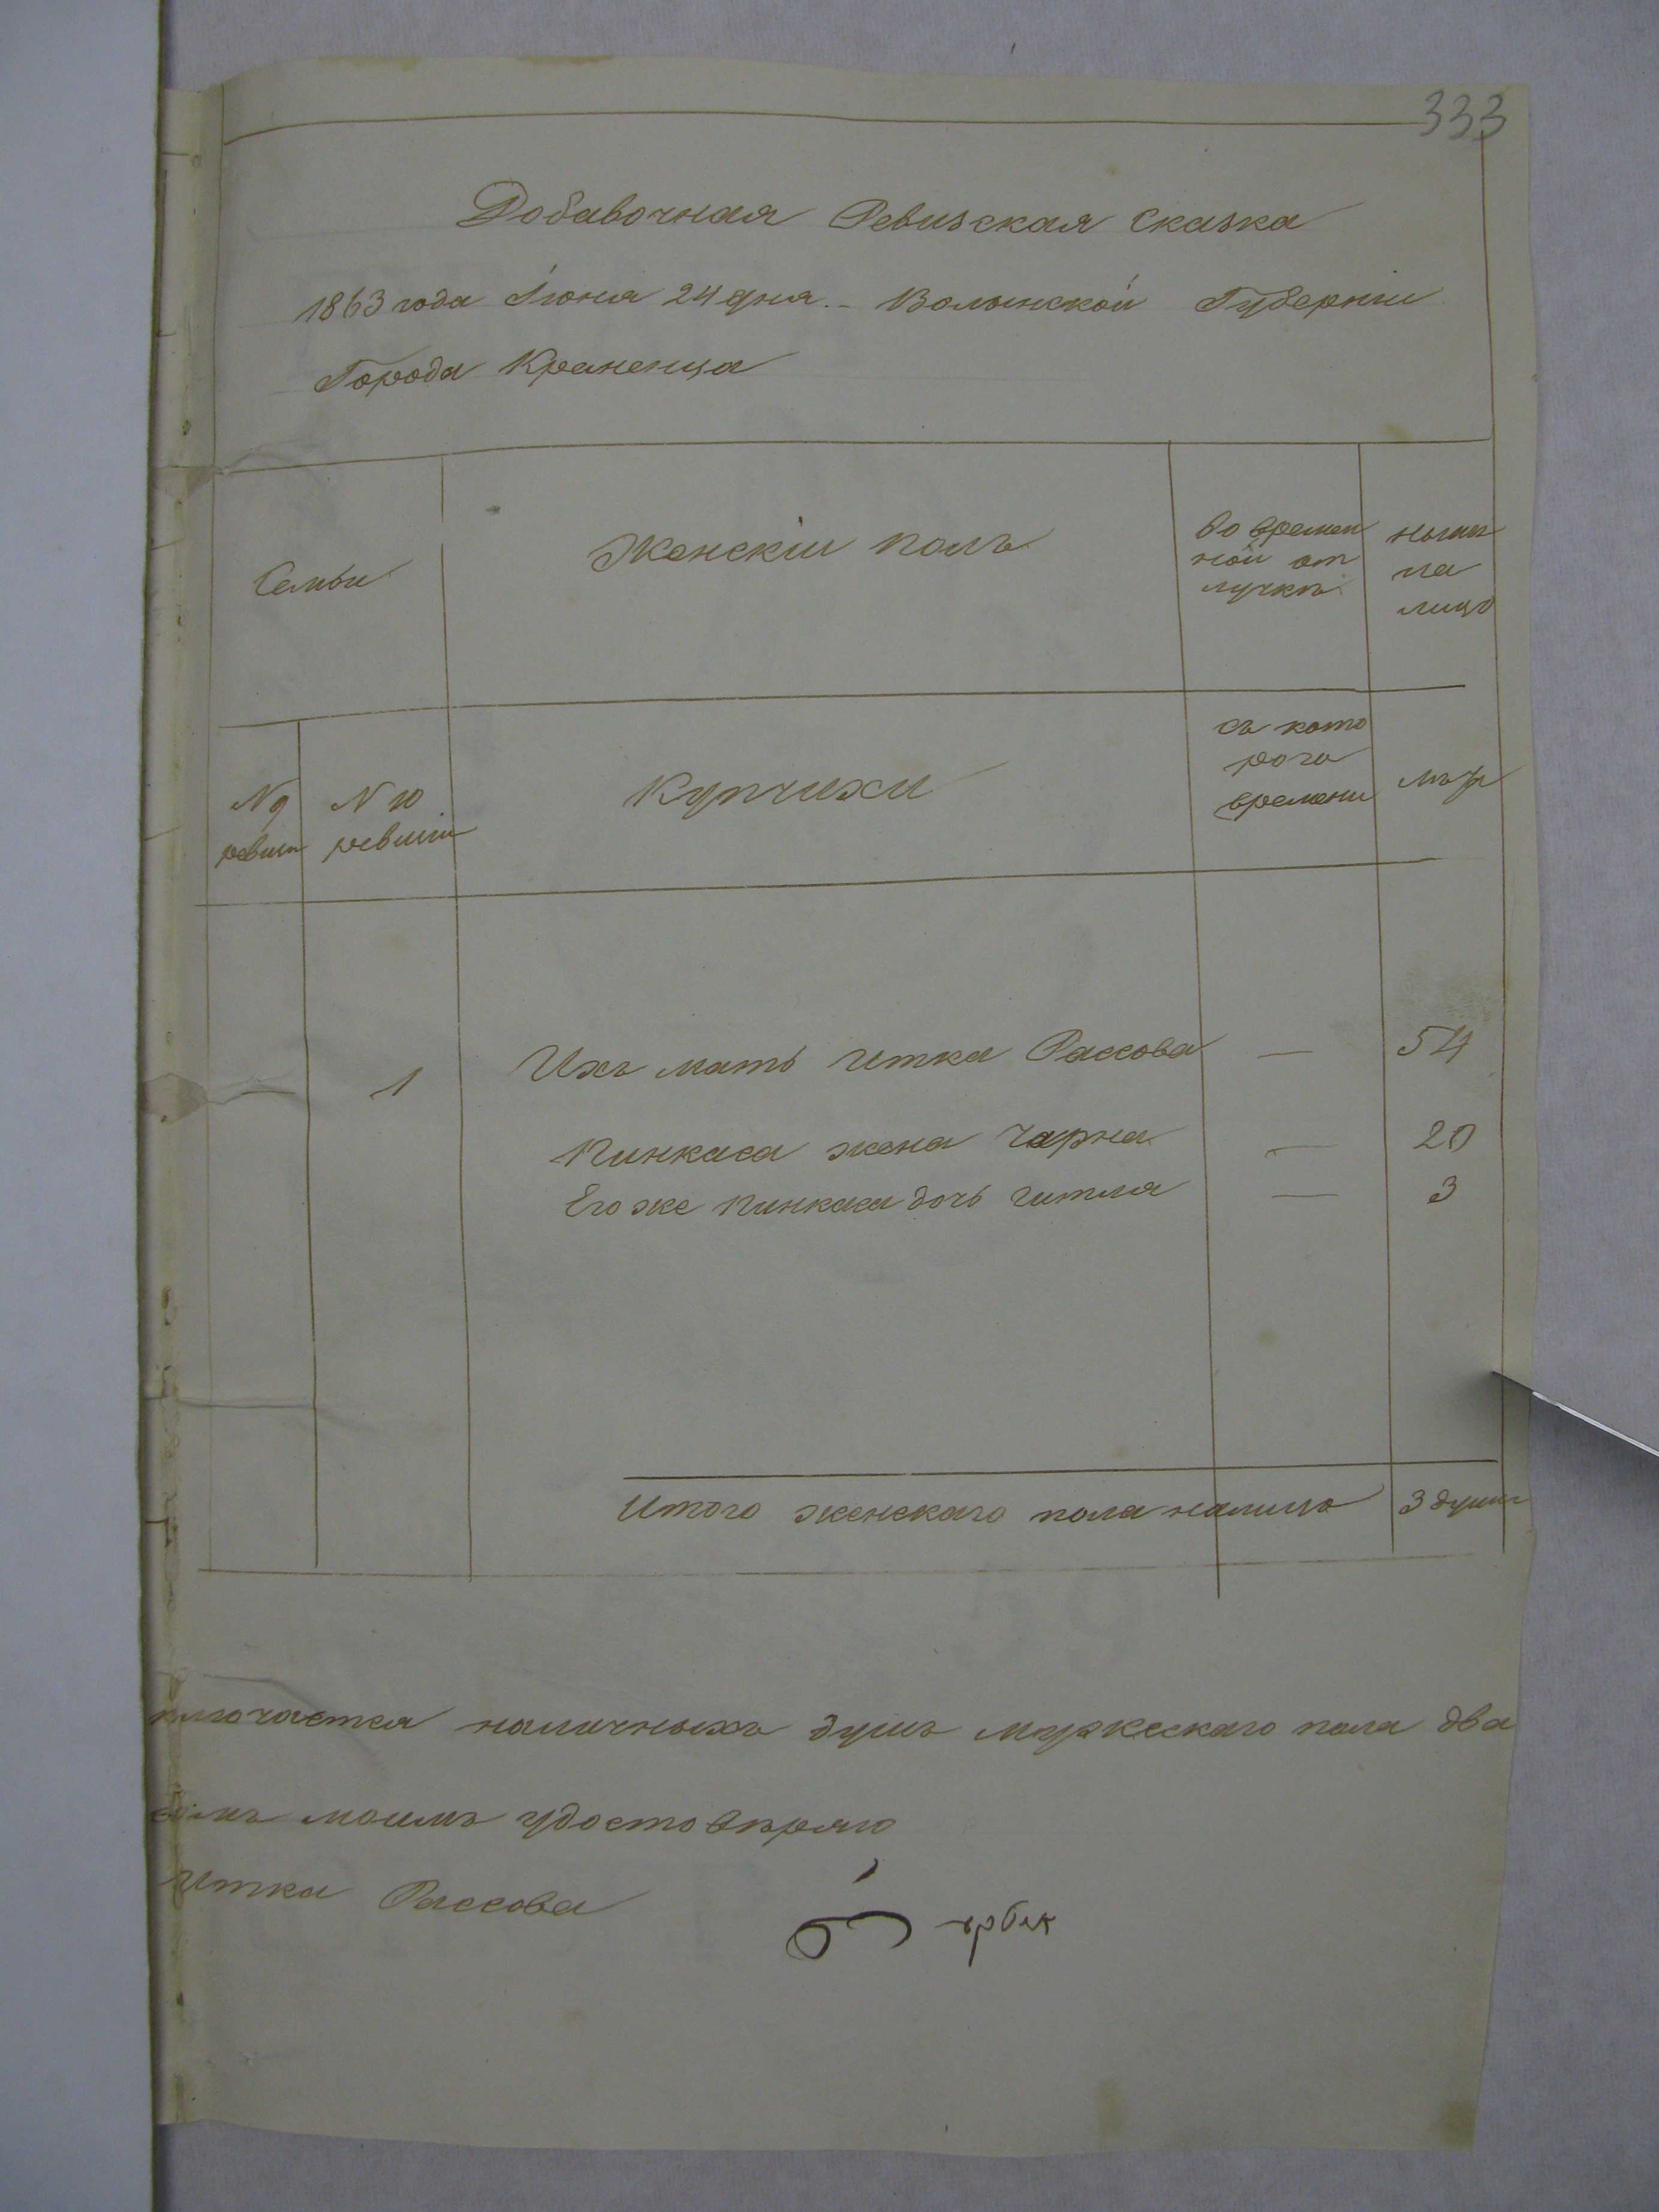 333
Добавочная Ревизская сказка
1863 года Іюня 24 дня. – Волынской Губерніи
Города Кременца
Семьи
Женскіи полъ
во времен
ной от
лучкѣ
нынѣ
на
лицо
№ 9
ревизіи
№ 10
ревизіи
Купчихи
съ кото
рого
времени
лѣта
1
Ихъ мать Итка Рассова — 54
Пинкаса жена Чарна — 20
Его же Пинкаса дочь Гитля — 3
Итого женскаго пола налицо 3 души
ключается наличныхъ душъ мужескаго пола два
моимъ удостовѣряю
Итка Рассова